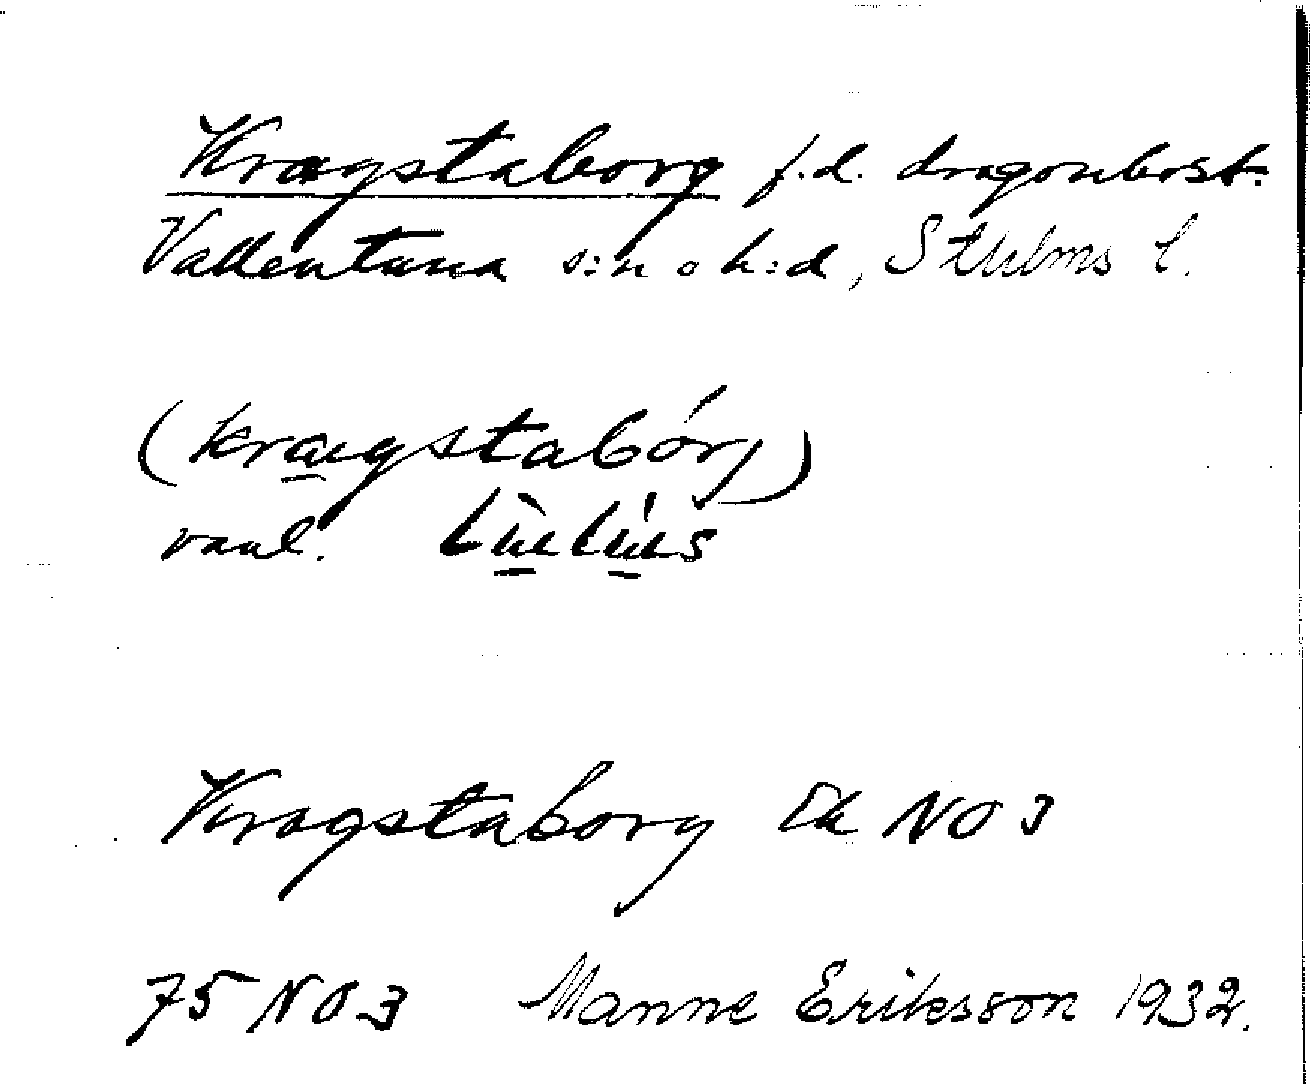 Kragstaborg f.d. dragonbost.
Vallentuna s:n o h:d, Sthlms l.
(kragstabórj)
vanl.
Kragstaborg Ek NO 3
75 NO 3 Manne Eriksson 1932.